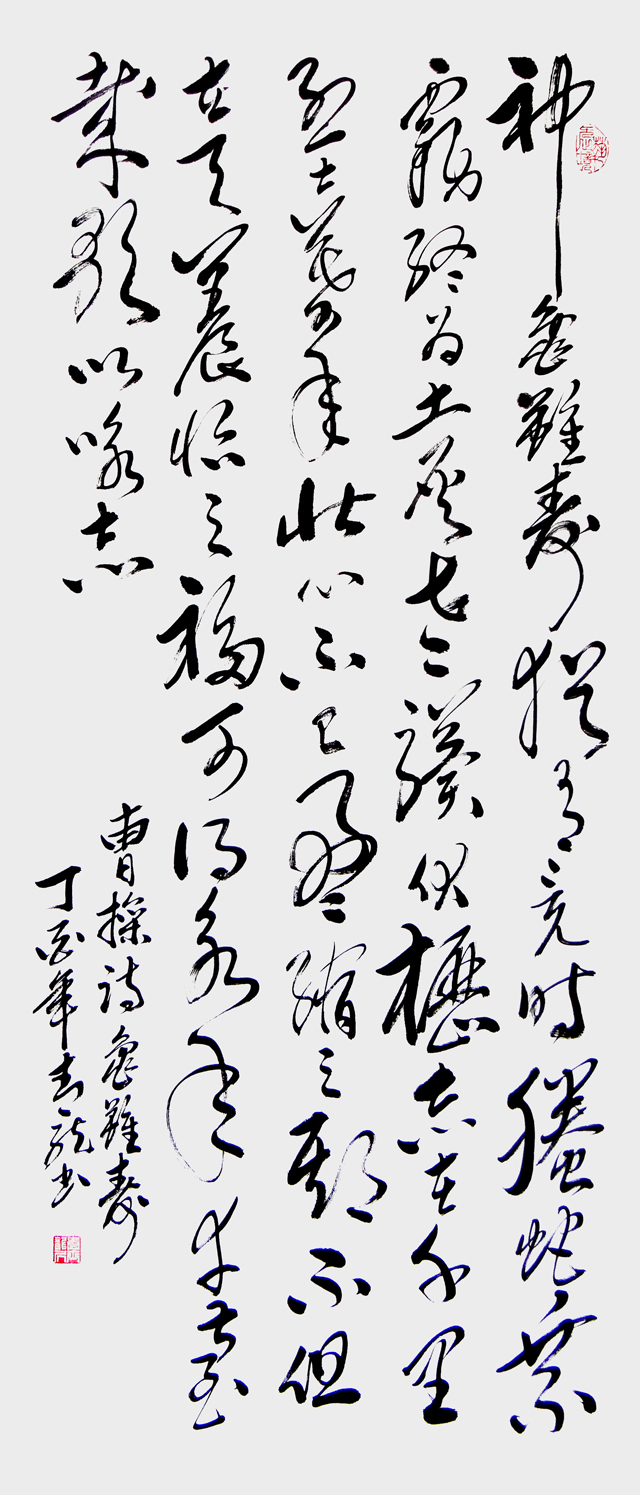 神龜雖壽猶有竟時螣蛇乘
霧終为土灰老驥伏櫪志在千里
烈士暮年壯心不已盈縮之期不但
在天養怡之福可得永年幸甚至
哉歌以咏志
曹操詩龜雖壽
丁酉年龙书